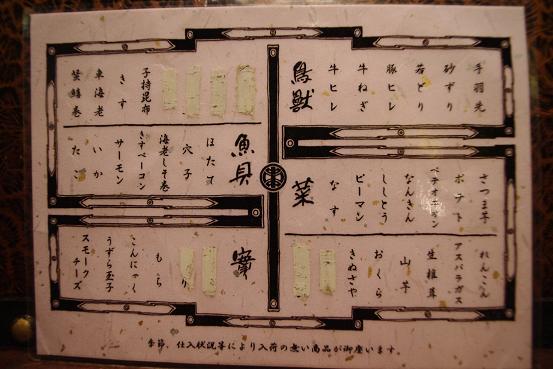 鳥獣
手羽先
砂ずり
若どり
豚ヒレ
牛ヒレ
牛ねぎ
牛ヒレ
菜
さつま芋
ポテト
ペテオニオン
なんきん
ししとう
ピーマン
なす
れんこん
アスパラガス
生椎茸
山芋
おくら
きぬさや
魚貝
子持昆布
きす
車海老
蟹鱚巻
ほたて
穴子
海老しそ巻
きすベーコン
サーモン
いか
たこ
もち
こんにゃく
うずら玉子
スモークチーズ
季節、仕入状況等により入荷の無い商品が御座います。